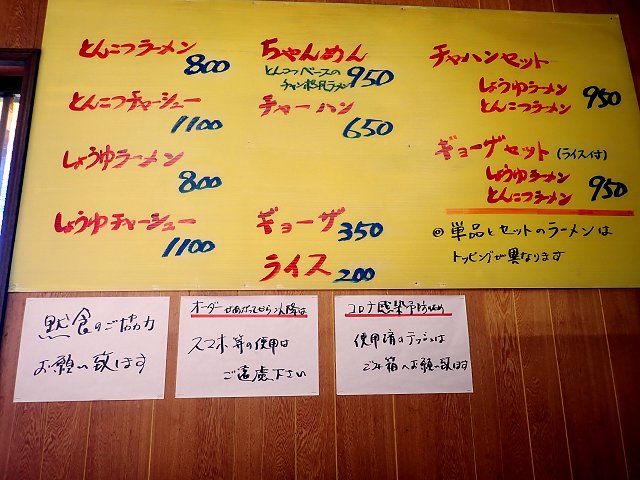 とんこつラーメン 800
とんこつチャーシュー 1100
しょうゆラーメン 800
しょうゆチャーシュー 1100
ちゃんめん 950
とんこつベースの
チャンポン風ラーメン
チャーハン 650
ギョーザ 350
ライス 200
チャハンセット
しょうゆラーメン
とんこつラーメン 950
ギョーザセット (ライス付)
しょうゆラーメン
とんこつラーメン 950
◎単品とセットのラーメンは
トッピングが異なります
黙食のご協力
お願い致します
オーダーがあがってから以降は
スマホ等の使用は
ご遠慮下さい
コロナ感染予防の為
使用済のテッシュは
ゴミ箱へお願い致します